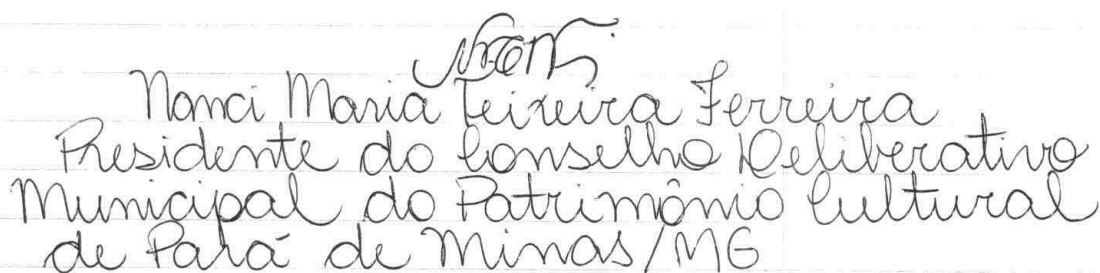 Nanci Maria Teixeira Ferreira
Presidente do Conselho Deliberativo
Municipal do Patrimônio Cultural
de Pará de Minas/MG